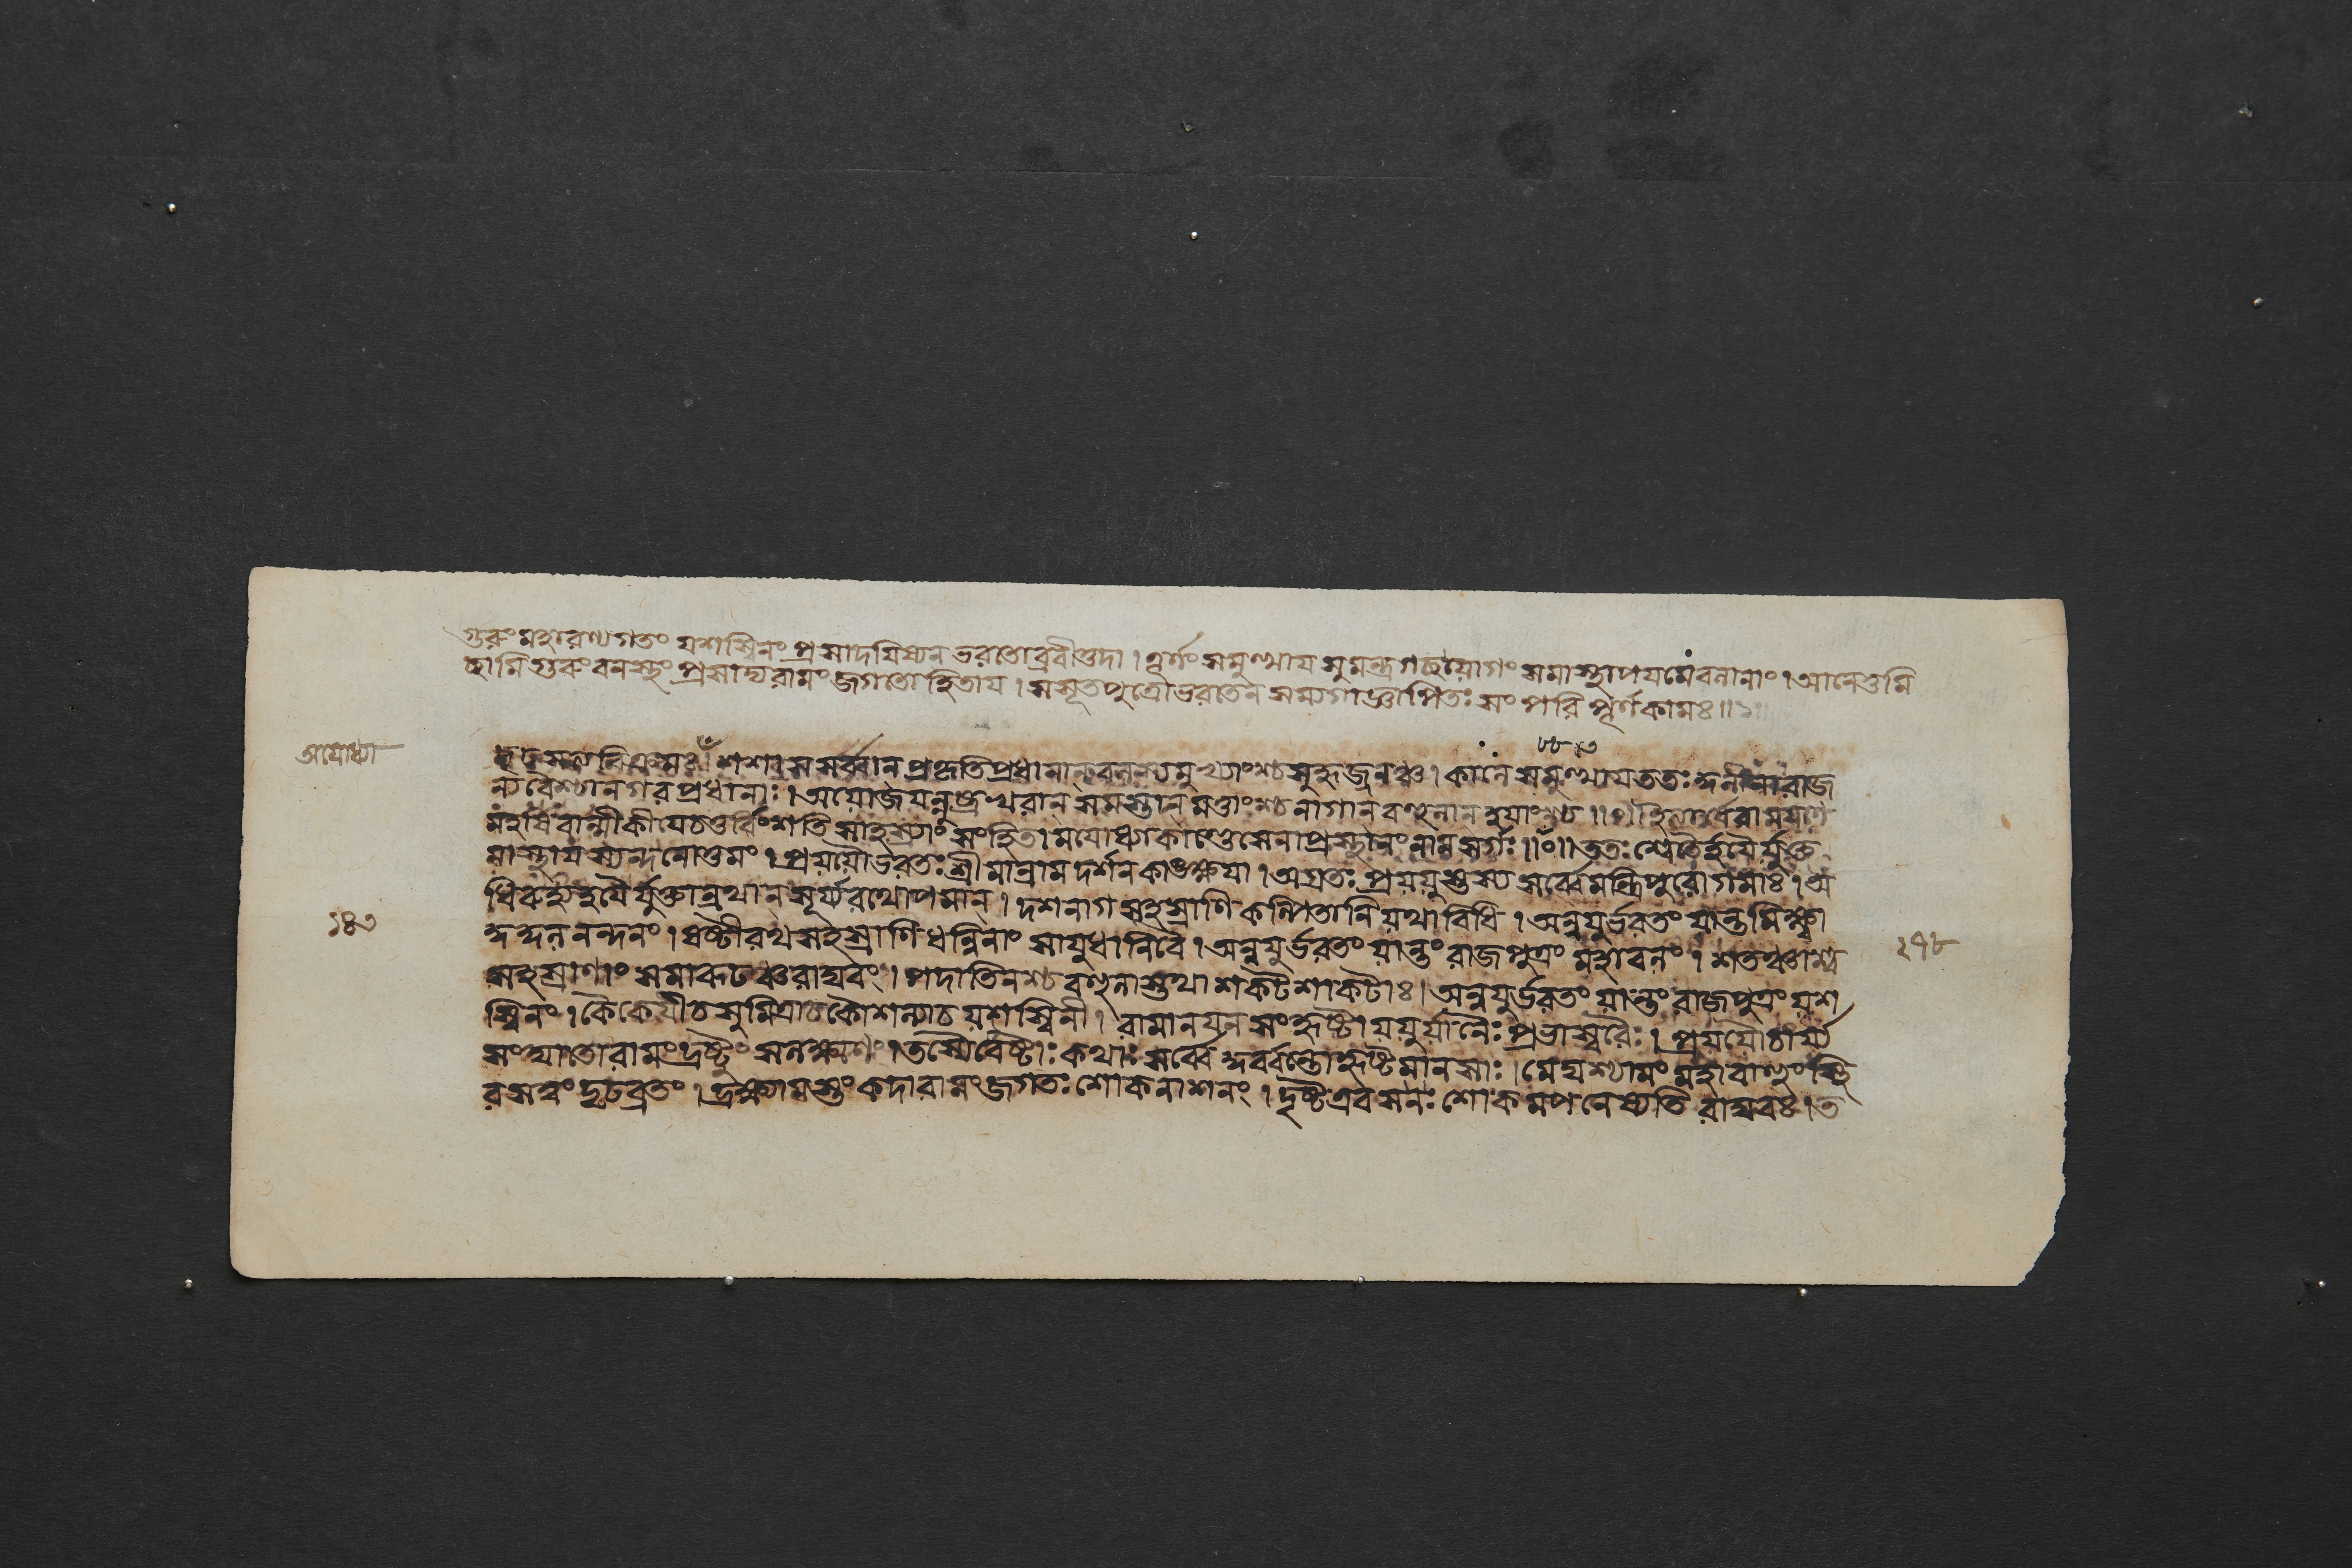 গুরুং মহারণ্যগতং যশস্বিনং প্রসাদয়িষ্যন ভরতোব্রবীত্তদা । তূর্ণং সমুত্থায় সুমন্ত্র গচ্ছ যোগং সমাস্থাপয় মে বলানাং । আনেতুমি
চ্ছামি গুরুং বনস্থং প্রসাদ্য রামং জগতো হিতায় । স সূতপুত্রো ভরতেন সম্যগাজ্ঞাপিতঃ সংপরিপূর্ণকামঃ ॥১॥
অযোধ্যা
শশাস সর্ব্বান প্রকৃতিপ্রধানান বলস্য মুখ্যাংশ্চ সুহৃজ্জনঞ্চ । কালে সমুত্থায় ততঃ রাজ
ন্যবৈশ্যা নগরপ্রধানাঃ । অযোজয়ন্নুষ্ট্রখরান সমস্তান মত্তাংশ্চ নাগান বহুলান হয়াংশ্চ ॥ রামায়ণে
মহর্ষিবাল্মীকীয়ে চতুর্ব্বিংশতিসাহস্র্যাং সংহিতায়ামযোধ্যাকাণ্ডে সেনাপ্রস্থানং নাম সর্গঃ ॥০॥ ততঃ শ্বেতৈর্হয়ৈর্যুক্ত
মাস্থায় স্যন্দনোত্তমং । প্রযযৌ ভরতঃ শ্রীমান্রামদর্শনকাঙ্ক্ষয়া । অগ্রতঃ প্রযযুস্তস্য সর্ব্বে মন্ত্রিপুরোগমাঃ । অ
ধিরুহ্য হয়ৈর্যুক্তান্রথান সূর্য্যরথোপমান । দশনাগসহস্রাণি কল্পিতানি যথাবিধি । অনুযুর্ভরতং যান্তমিক্ষ্বা
১৪৩
নন্দনং । ষষ্টী রথসহস্রাণি ধন্বিনাং সায়ুধানি বৈ । অনুযুর্ভরতং যান্তং রাজপুত্রং মহাবলং । শতঞ্চাশ্ব
২৭৮
সহস্রাণাং সমারূঢঞ্চ রাঘবং । পদাতিনশ্চ বহুলাস্তথা শকটশাকটাঃ । অনুযুর্ভরতং যান্তং রাজপুত্রং যশ
স্বিনং । কৈকেয়ী চ সুমিত্রা চ কৌশল্যা চ যশস্বিনী । রামানয়নসংহৃষ্টা যযুর্যানৈঃ প্রভাস্বরৈঃ । প্রযযৌ চার্য্য
সংঘাতো রামং দ্রষ্টুং সলক্ষ্মণং । তস্যৈবেষ্টাঃ কথাঃ সর্ব্বে হৃষ্টমানসাঃ । মেঘশ্যামং মহাবাহুং স্থি
রসত্ত্বং দৃঢব্রতং । দ্রক্ষ্যামস্তং কদা রামং জগতঃ শোকনাশনং । দৃষ্ট এব স নঃ শোকমপনেষ্যতি রাঘবঃ । ত